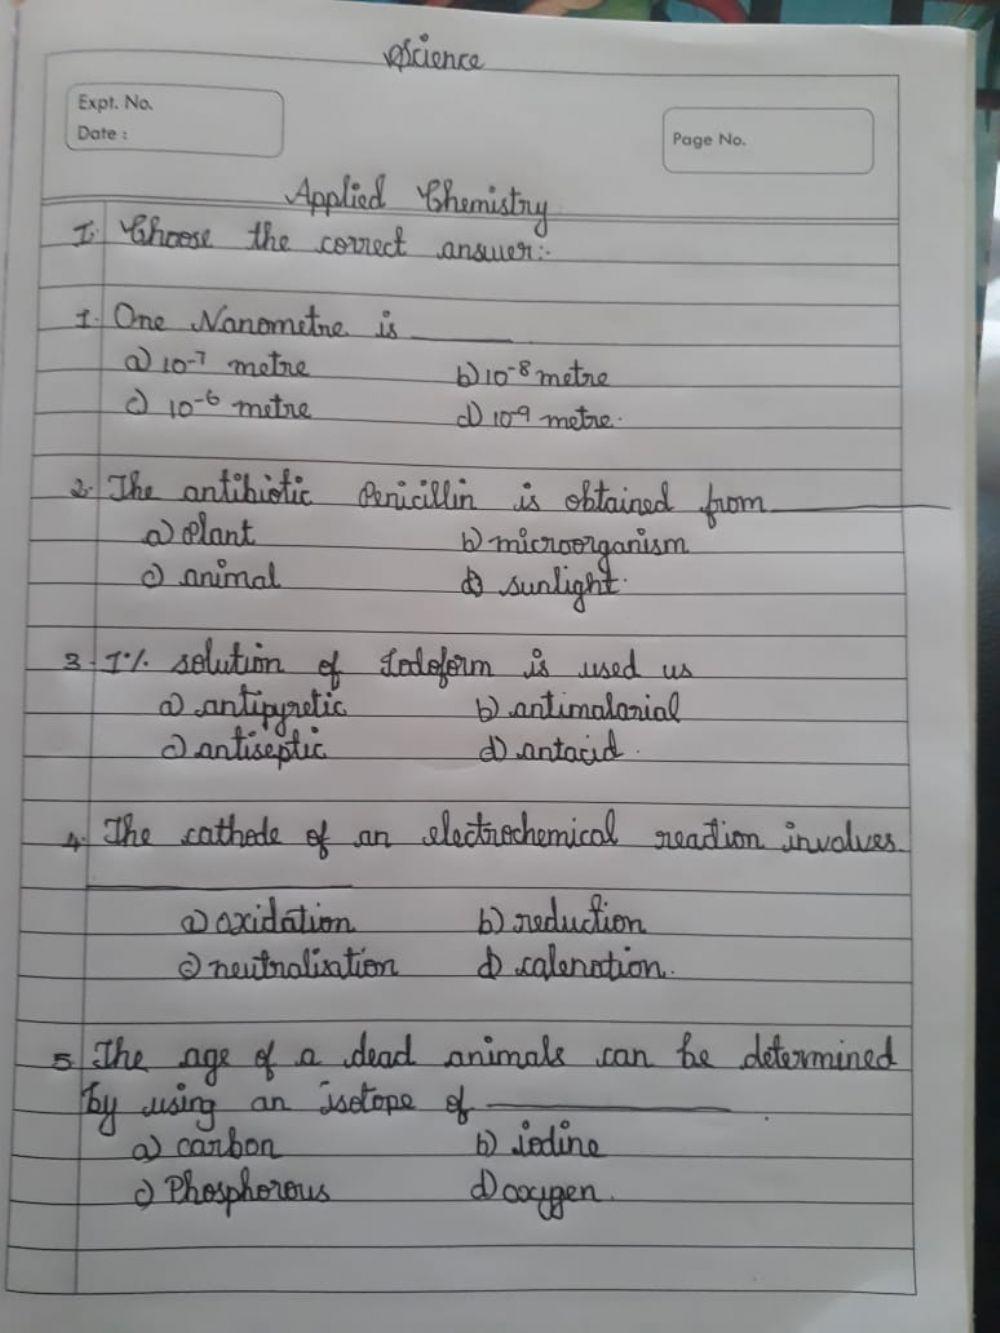 Science
Expt. No.
Date :
Page No.
Applied Chemistry
I. Choose the correct answer:-
1. One Nanometre is ______
a) 10⁻⁷ metre b) 10⁻⁸ metre
c) 10⁻⁶ metre d) 10⁻⁹ metre.
2. The antibiotic Penicillin is obtained from ______
a) plant b) microorganism
c) animal d) sunlight.
3. 1% solution of Iodoform is used us
a) antipyretic b) antimalarial
c) antiseptic d) antacid.
4. The cathode of an electrochemical reaction involves
______
a) oxidation b) reduction
c) neutralixation d) calenation.
5. The age of a dead animals can be determined
by using an isotope of ______.
a) carbon b) iodine
c) Phosphorous d) oxygen.